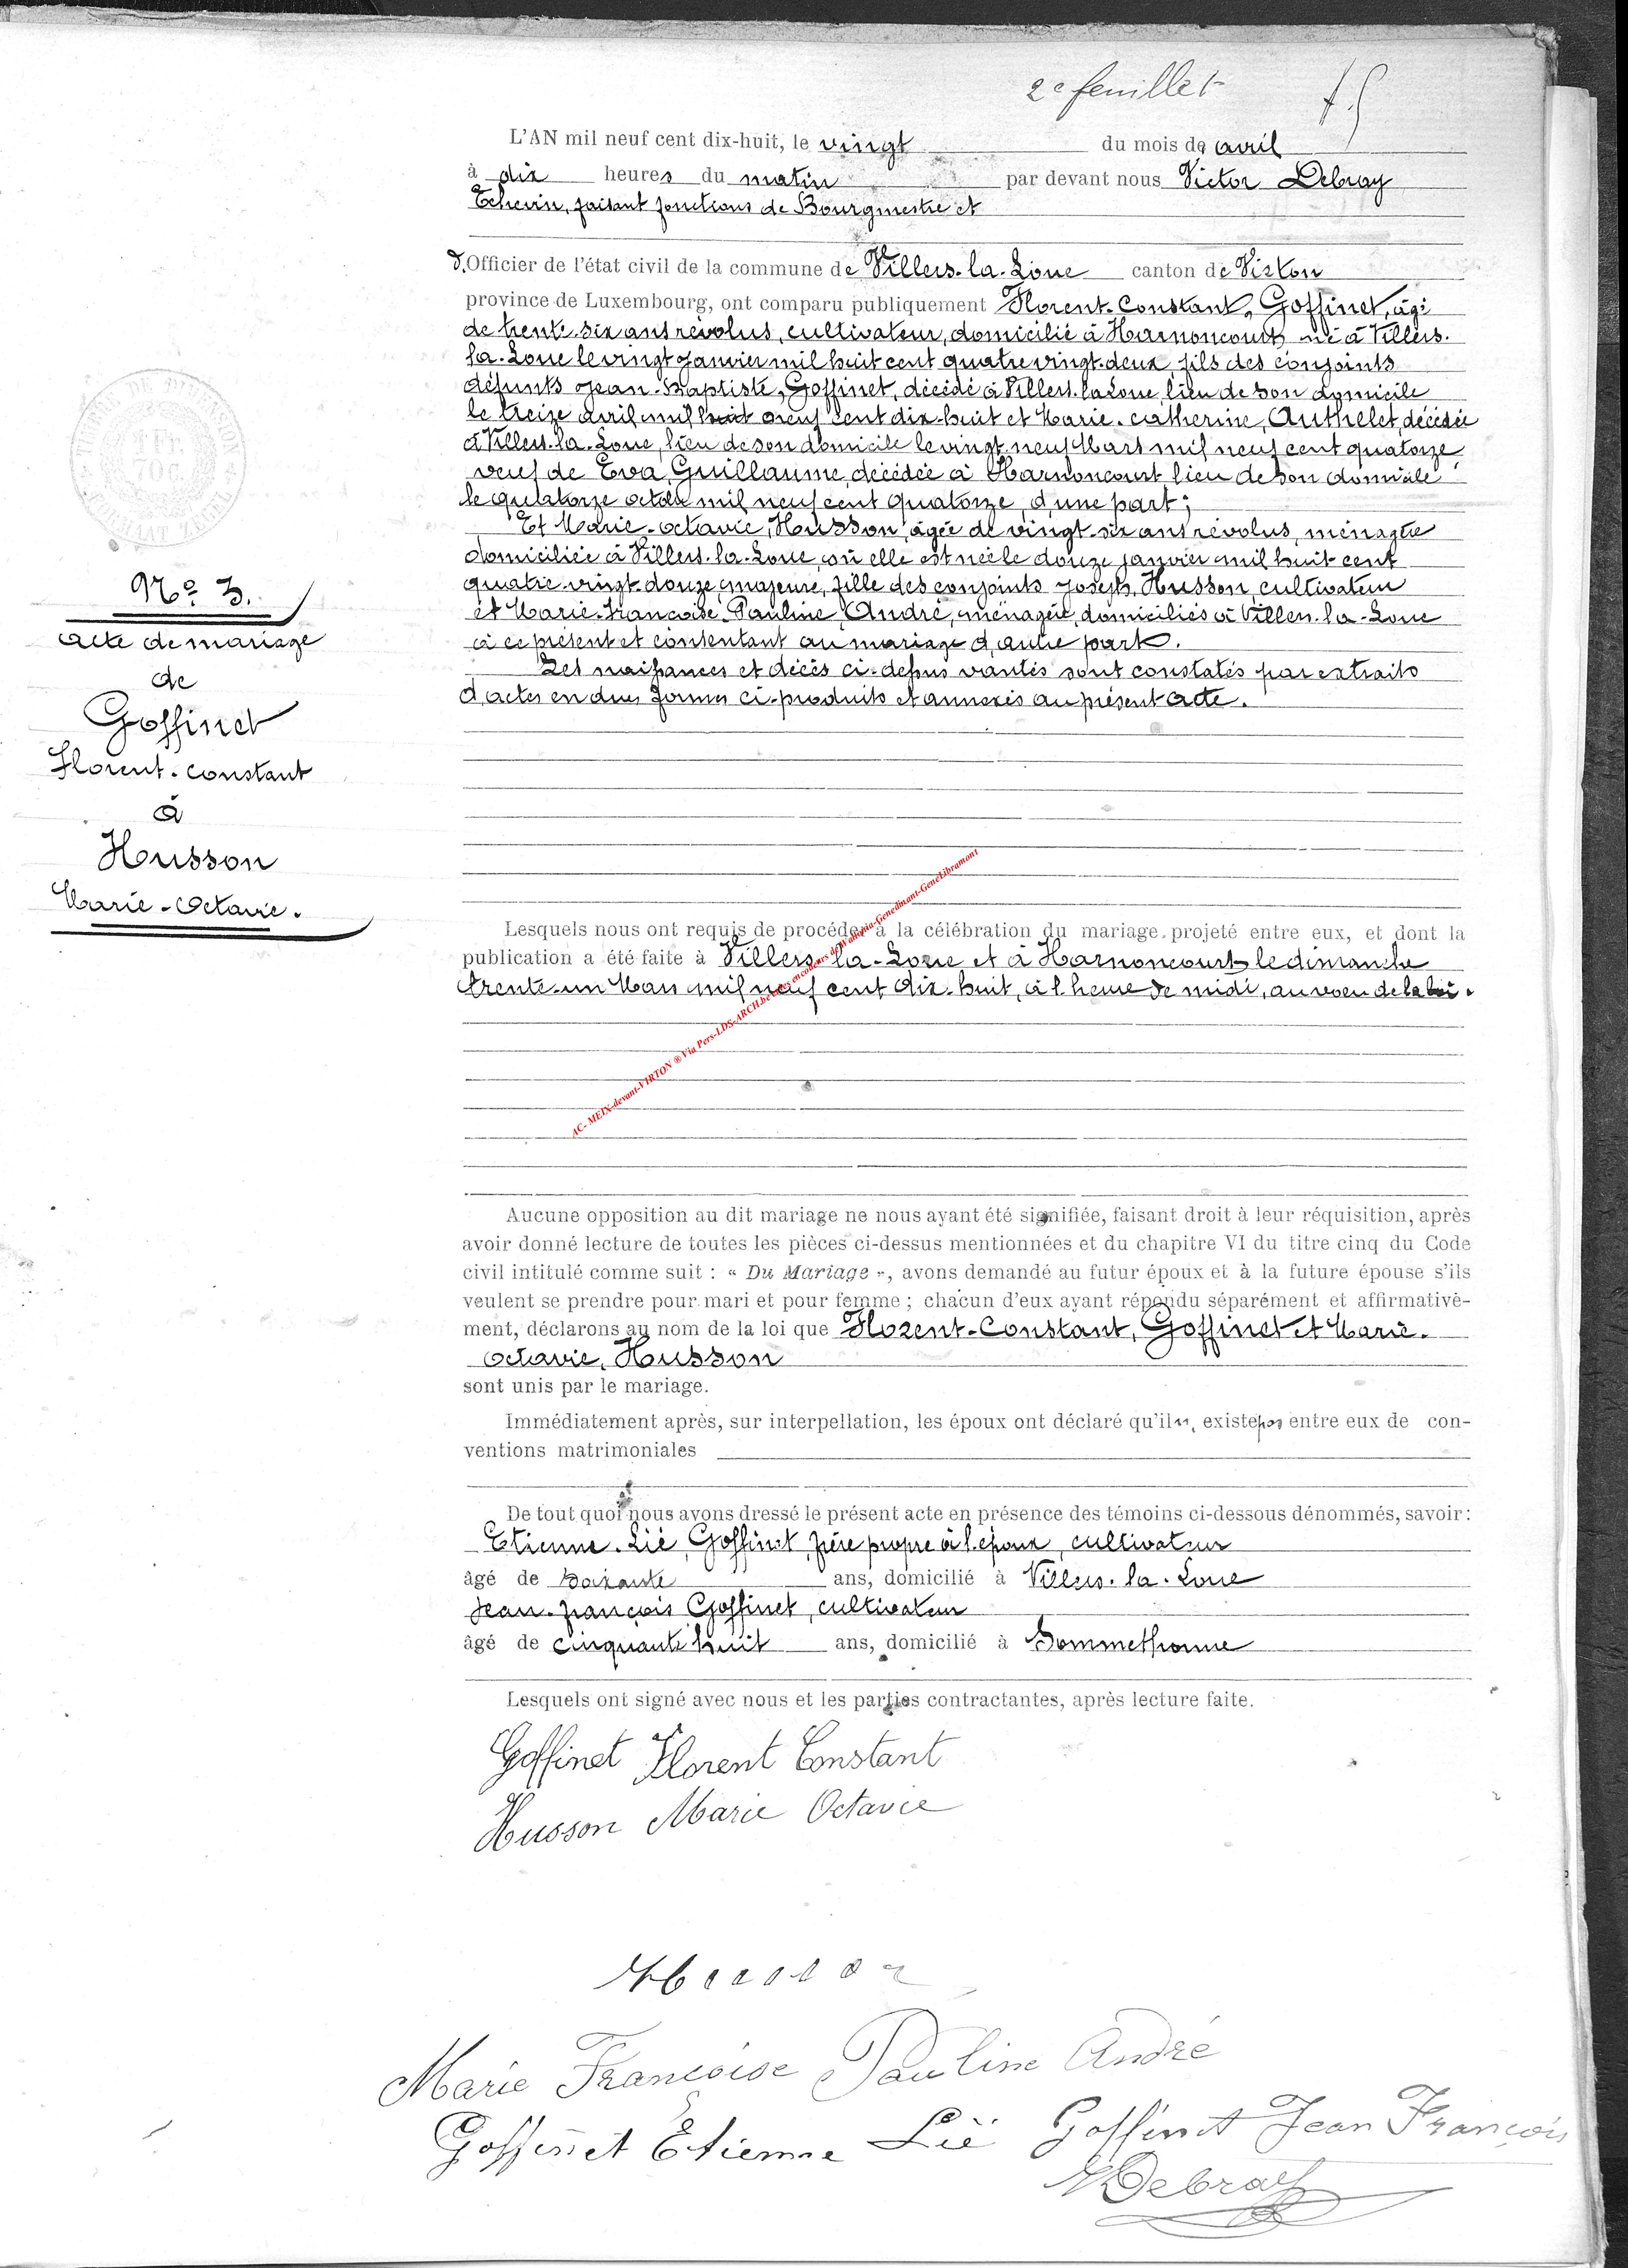 2e feuillet
L'AN mil neuf cent dix-huit, le vingt du mois de avril
à dix heures du matin par devant nous Victor Debray
Echevin, faisant fonctions de Bourgmestre et
Officier de l'état civil de la commune de Villers-la-Loue canton de Virton
province de Luxembourg, ont comparu publiquement Florent-Constant, Goffinet, âgé
de trente-six ans révolus, cultivateur, domicilié à Harnoncourt, né à Villers-
la-Loue le vingt janvier mil huit cent quatre vingt-deux, fils des conjoints
défunts Jean-Baptiste, Goffinet, décédé à Villers-la Loue, lieu de son domicile
le treize avril mil huit neuf cent dix-huit et Marie-Catherine, Authelet, décédée
à Villers-la-Loue, lieu de son domicile le vingt neuf Mars mil neuf cent quatorze,
veuf de Eva, Guillaume, décédée à Harnoncourt lieu de son domicile
le quatorze octobre mil neuf cent quatorze, d'une part;
Et Marie-Octavie, Husson, âgée de vingt-six ans révolus, ménagère
domiciliée à Villers-la-Loue, où elle est née le douze janvier mil huit cent
quatre-vingt-douze, majeure, fille des conjoints Joseph, Husson, cultivateur
et Marie-Françoise-Pauline, André, ménagère, domiciliés à Villers-la-Loue
à ce présent et consentant au mariage d'autre part.
Les naissances et décès ci-dessus vantés sont constatés par extraits
d'actes en dues formes ci-produits et annexés au présent acte.
TIMBRE DE DIMENSION
1 FR.
70 C.
FORMAAT ZEGEL
No. 3.
Acte de mariage
de
Goffinet
Florent-Constant
à
Husson
Marie-Octavie.
Lesquels nous ont requis de procéder à la célébration du mariage projeté entre eux, et dont la
publication a été faite à Villers-la-Loue et à Harnoncourt le dimanche
trente-un Mars mil neuf cent dix-huit, à l'heure de midi, au voeu de la loi.
AC- MEIX-devant-VIRTON ® Via Pers-LDS-ARCH.be
Aucune opposition au dit mariage ne nous ayant été signifiée, faisant droit à leur réquisition, après
avoir donné lecture de toutes les pièces ci-dessus mentionnées et du chapitre VI du titre cinq du Code
civil intitulé comme suit : « Du Mariage », avons demandé au futur époux et à la future épouse s'ils
veulent se prendre pour mari et pour femme ; chacun d'eux ayant répondu séparément et affirmative-
ment, déclarons au nom de la loi que Florent-Constant, Goffinet et Marie-
Octavie, Husson
sont unis par le mariage.
Immédiatement après, sur interpellation, les époux ont déclaré qu'il n' existe pas entre eux de con-
ventions matrimoniales
De tout quoi nous avons dressé le présent acte en présence des témoins ci-dessous dénommés, savoir:
Etienne-Lié, Goffinet, frère propre à l'époux, cultivateur
âgé de soixante ans, domicilié à Villers-la-Loue
Jean-François Goffinet, cultivateur
âgé de cinquante huit ans, domicilié à Sommethonne
Lesquels ont signé avec nous et les parties contractantes, après lecture faite.
Goffinet Florent Constant
Husson Marie Octavie
Marie Françoise Pauline André
Goffinet Etienne Lié Goffinet Jean François
VDebray